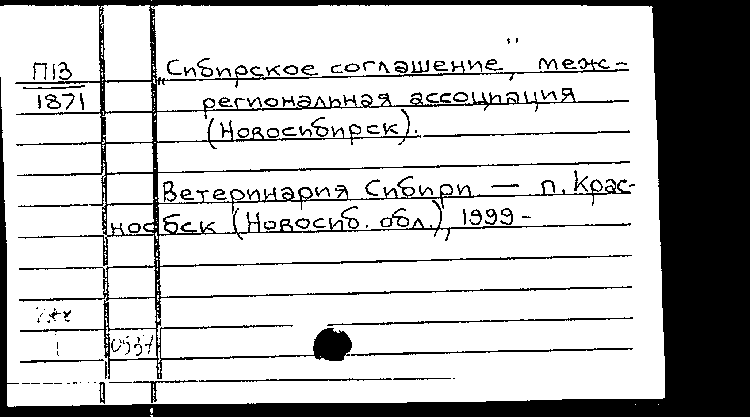 П13 „Сибирское соглашение", меж-
1871 региональная ассоциация
(Новосибирск).
Ветеринария Сибири — п. Крас-
нообск (Новосиб. обл.), 1999 -
0537